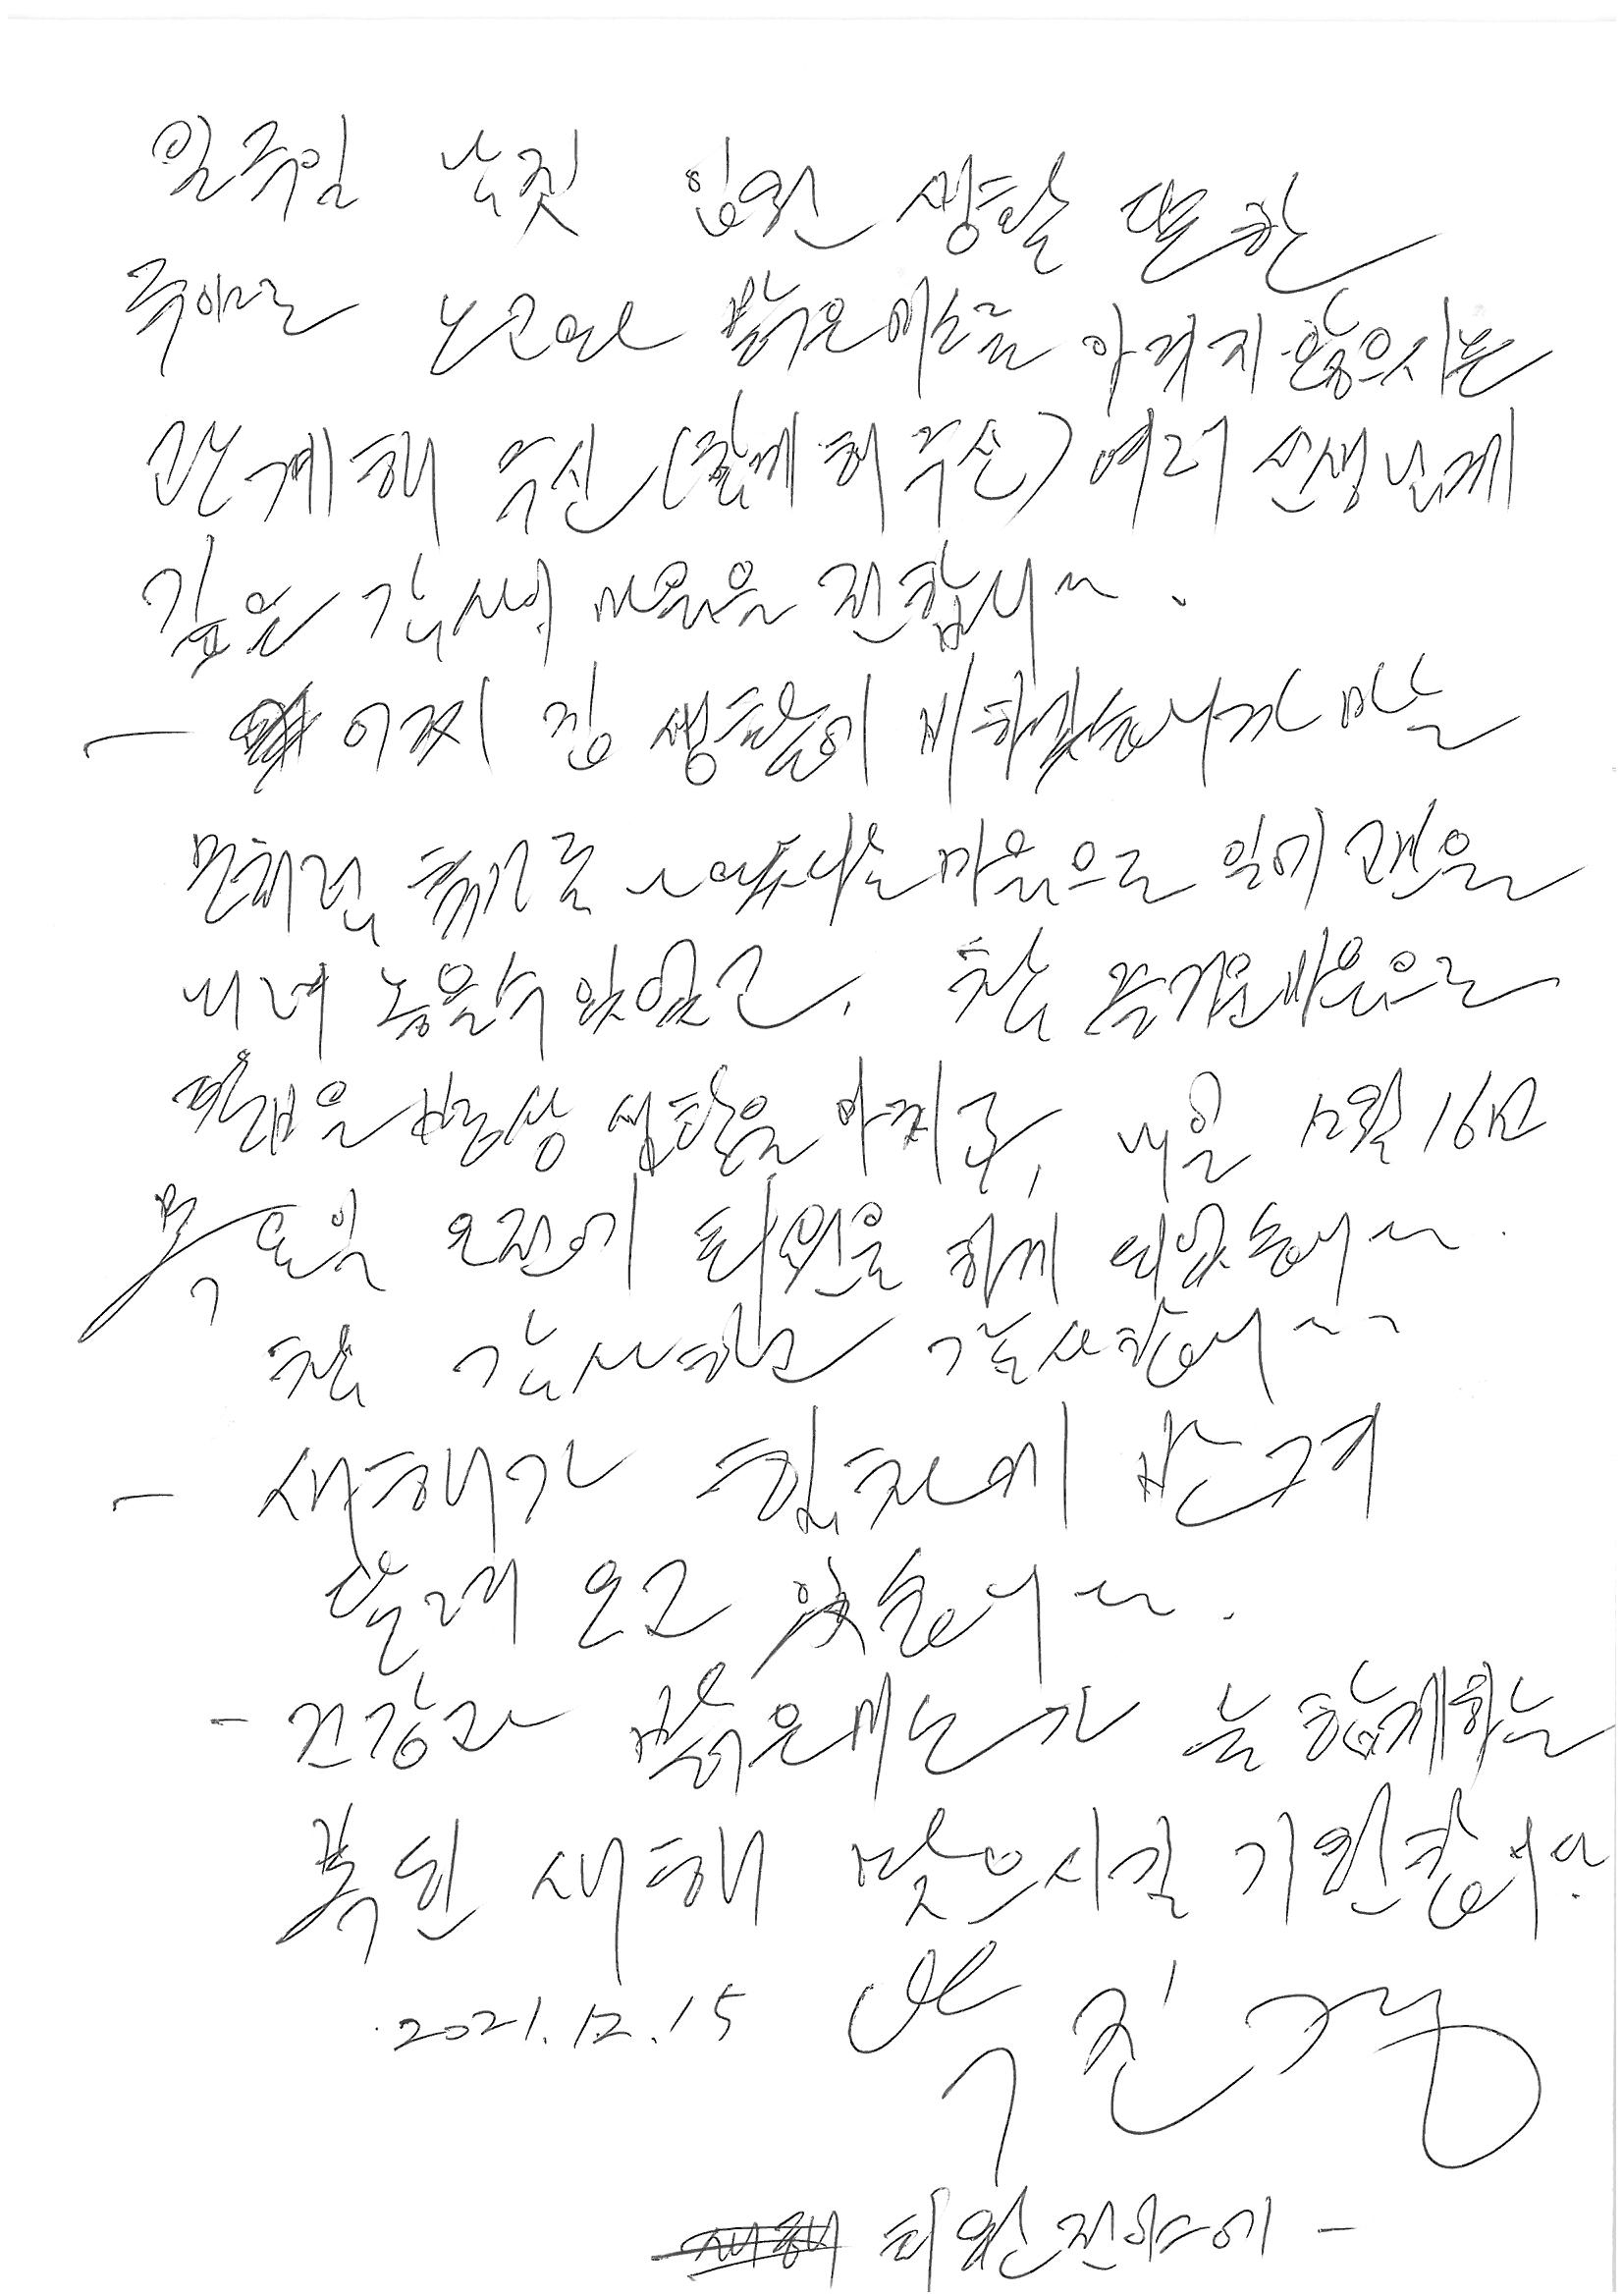 일주일 남짓 입원 생활 또한
주야로 노고와 밝은 미소를 아끼지 않으시는
관계해 주신 (함께 해 주신) 여러 선생님께
깊은 감사의 마음을 전합니다.
- 어찌 집 생활에 비하겠습니까 만은
마음으로 일에 관을
내려 놓을수 있었고, 참 즐거운 마음으로
병상 생활을 마치고, 내일 12월 16일
목요일 오전에 퇴원을 하게 되었습니다.
참 감사하고 감사합니다
- 새해가 힘차게 반기며
달려 오고 있습니다.
- 건강과 밝은 미소가 늘 함께하는
복된 새해 맞으시길 기원합니다.
2021.12.15 박진
퇴원 전야에 -